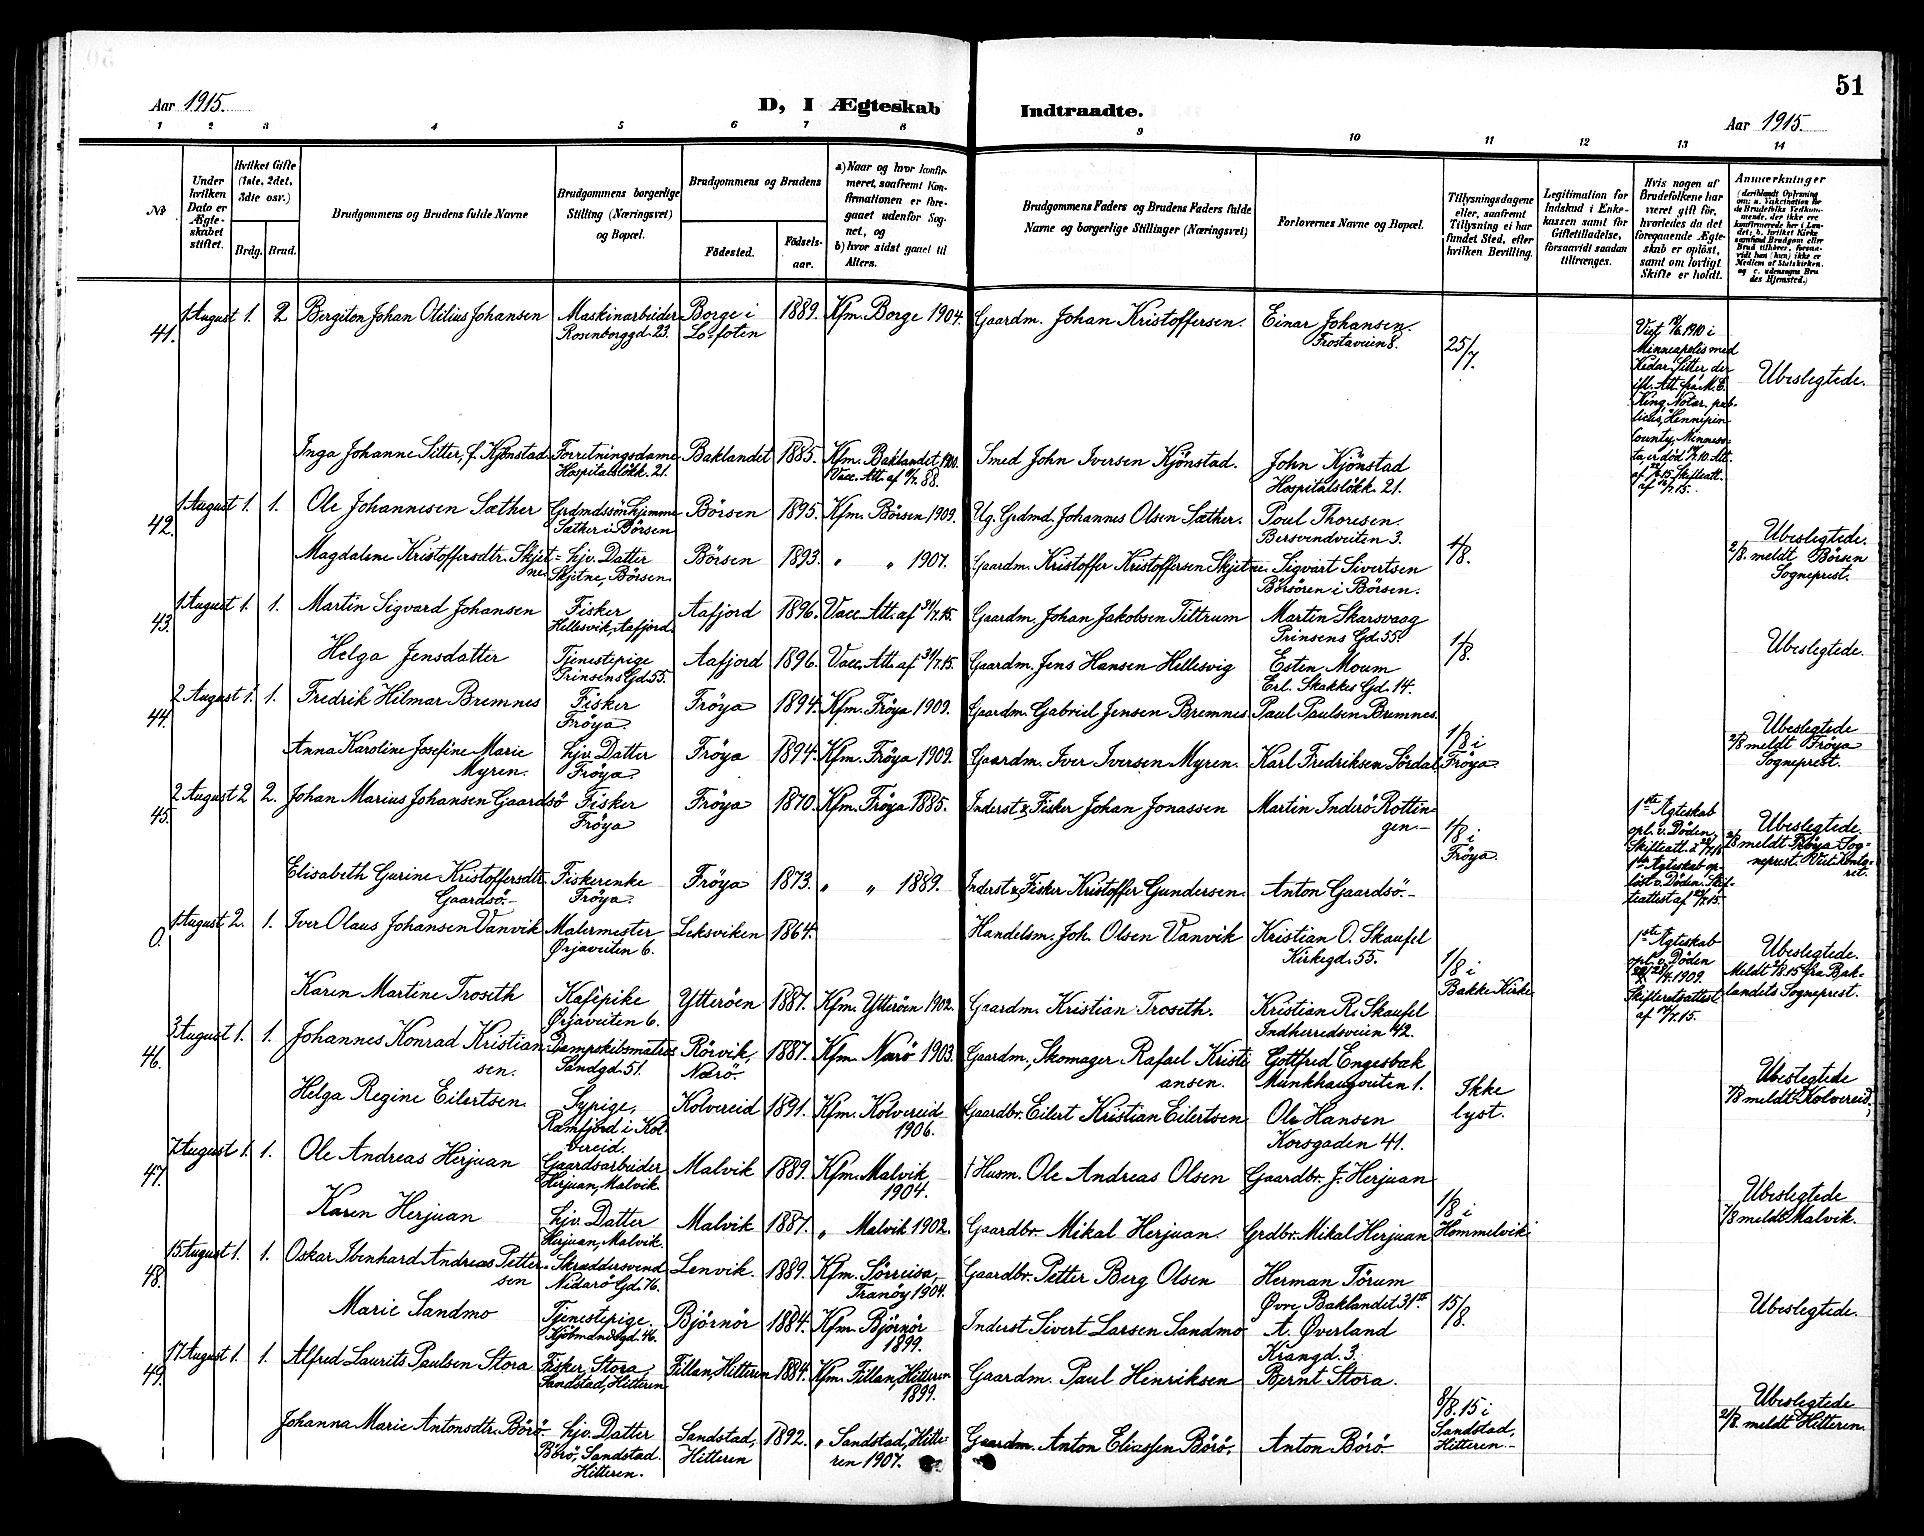 51
Aar 1915.
D, I Ægteskab Indtraadte.
Aar 1915.
1 2 3 4 5 6 7 8 9 10 11 12 13 14
No
Under hvilken Dato er Ægteskabet stiftet.
Hvilket Gifte (1ste, 2det, 3die osv.)
Brdg. Brud.
Brudgommens og Brudens fulde Navne
Brudgommens borgerlige Stilling (Næringsvei) og Bopæl.
Brudgommens og Brudens
Fødested.
Fødselsaar.
a) Naar og hvor konfirmeret, saafremt Konfirmationen er foregaaet udenfor Sognet, og
b) hvor sidst gaaet til Alters.
Brudgommens Faders og Brudens Faders fulde Navne og borgerlige Stillinger (Næringsvei)
Forlovernes Navne og Bopæl.
Tillysningsdagene eller, saafremt Tillysning ei har fundet Sted, efter hvilken Bevilling.
Legitimation for Indskud i Enkekassen samt for Giftetilladelse, forsaavidt saadan tiltrænges.
Hvis nogen af Brudefolkene har været gift før, hvorledes da det foregaaende Ægteskab er opløst, samt om lovligt Skifte er holdt.
Anmærkninger
41. 1 August 1. 2 Bergiton Johan Otilius Johansen Maskinarbeider Borge i 1889. Kfm. Borge 1904. Gaardm. Johan Kristoffersen. Einar Johansen.
Rosenborggd. 23. Lofoten Frostaveien 8. 25/7. Ubeslegtede.
Viet 1910 i
Minneapolis med
Kedar Sitter der
ifl. Att. fra M. E.
King Notar. pub-
licus, Hennipin
County, Minneso-
ta er død
Inga Johanne Sitter, f. Kjönstad Forretningsdame Baklandet 1885. Kfm. Baklandet 1900. Smed John Iversen Kjönstad. John Kjönstad
Hospitalslökk. 21. Vacc. Att. af 88. Hospitalslökk. 21.
42. 1 August 1. 1. Ole Johannesen Sæther Grdmdssön hjemme Börsen 1895. Kfm. Börsen 1909. Ug. Grdmd. Johannes Olsen Sæther. Poul Thoresen.
Sæther i Börsen Bersvendveiten 3. 1/8. Ubeslegtede.
Magdalene Kristoffersdtr. Skjet- hjv. Datter Börsen 1893. " " 1907. Gaardm. Kristoffer Kristoffersen Skjetne. Sigvart Sivertsen 2/8. meldt Börsen
ne. Skjetne, Börsen. Börsören i Börsen. Sogneprest.
43. 1 August 1. 1. Martin Sigvard Johansen Fisker Aafjord 1896. Vacc. Att. af 31/7.15. Gaardm. Johan Jakobsen Tiltrum Martin Skarsvaag
Hellesvik, Aafjord. Prinsens Gd. 55. 1/8. Ubeslegtede.
Helga Jensdatter Tjenestepige Aafjord 1896. Vacc. Att. af 31/7.15. Gaardm. Jens Hansen Hellesvig Esten Moum
Prinsens Gd. 55. Erl. Skakkes Gd. 14.
44. 2 August 1. 1. Fredrik Hilmar Bremnes Fisker Fröya 1894. Kfm. Fröya 1909. Gaardm. Gabriel Jensen Bremnes. Paul Paulsen Bremnes.
Fröya. 1/8 i Ubeslegtede
Anna Karoline Josefine Marie hjv. Datter Fröya 1894. Kfm. Fröya 1909. Gaardm. Iver Iversen Myren. Karl Fredriksen Sördal Fröya. 2/8 meldt Fröya
Myren. Fröya. Sogneprest.
45. 2 August 2 2. Johan Marius Johansen Gaardsö Fisker Fröya 1870. Kfm. Fröya 1885. Inderst & Fisker Johan Jonassen Martin Inderö Rottin-
Fröya gen. 1/8 i Fröya. 1ste Ægteskab
opl. v. Döden. Ubeslegtede.
2/8 meldt Fröya Sog-
neprest.
Elisabeth Gurine Kristoffersdtr. Fiskerenke Fröya 1873. " " 1889. Inderst & Fisker Kristoffer Gundersen. Anton Gaardsö.
Gaardsö. Fröya. 1ste Ægteskab op-
löst v. Döden. Skif-
teattest af
0. 1 August 2. 1. Iver Olaus Johansen Vanvik Malermester Leksviken 1864. Handelsm. Joh. Olsen Vanvik Kristian O. Skaufel
Ørjaveiten 6. Kirkegd. 55. 1/8 i Bakke Kirke 1ste Ægteskab
opl. v. Döden
1909.
Skifteretsattest
af Ubeslegtede.
Meldt fra Bak-
landets Sogneprest.
Karen Martine Troseth Kafépike Ytteröen 1887. Kfm. Ytteröen 1902. Gaardm. Kristian Troseth. Kristian R. Skaufel
Ørjaveiten 6. Indherredsveien 42.
46. 3 August 1. 1. Johannes Konrad Kristian- Dampskibsmatros Rörvik, 1887. Kfm. Nærö 1903. Gaardm., Skomager Rafael Kristi- Gottfred Engesbak
sen. Sandgd. 51. Nærö. ansen. Munkhaugveiten 1. Ikke lyst. Ubeslegtede
Helga Regine Eilertsen. Sypige, Kolvereid 1891. Kfm. Kolvereid Gaardbr. Eilert Kristian Eilertsen Ole Hansen meldt Kolvereid
Ramfjord i Kol- 1906. Korsgaden 41.
vereid.
47. 7 August 1. 1. Ole Andreas Herjuan Gaardsarbeider Malvik 1889. Kfm. Malvik † Husm. Ole Andreas Olsen Gaardbr. J. Herjuan
Herjuan, Malvik. 1904. 1/8 i Ubeslegtede
Karen Herjuan hjv. Datter Malvik 1887. " Malvik 1902. Gaardbr. Mikal Herjuan. Grdbr. Mikal Herjuan Hommelvik meldt Malvik.
Herjuan, Malvik.
48. 15 August 1. 1. Oskar Ibenhard Andreas Petter- Skræddersvend Lenvik. 1889. Kfm. Sörreisa, Gaardbr. Petter Berg Olsen Herman Törum
sen Nidarö Gd. 76. Tranöy 1904. Øvre Baklandet 31 15/8. Ubeslegtede.
Marie Sandmo Tjenestepige. Björnör 1884. Kfm. Björnör Inderst Sivert Larsen Sandmo A. Øverland
Kjöbmandsgd. 46. 1899. Krangd. 3.
49. 17 August 1. 1. Alfred Laurits Paulsen Stora Fisker, Stora Fillan, Hitteren 1884. Kfm. Fillan, Hitteren Gaardm. Paul Henriksen Bernt Stora.
Sandstad, Hitteren 1899. 8/8. 15 i Ubeslegtede
Johanna Marie Antonsdtr. Börö hjv. Datter Sandstad, 1892. " Sandstad, Hitte- Gaardm. Anton Eliassen Börö. Anton Börö Sandstad, meldt Hitteren.
Börö, Sandstad. Hitteren ren 1907. Hitteren.
Hitteren.